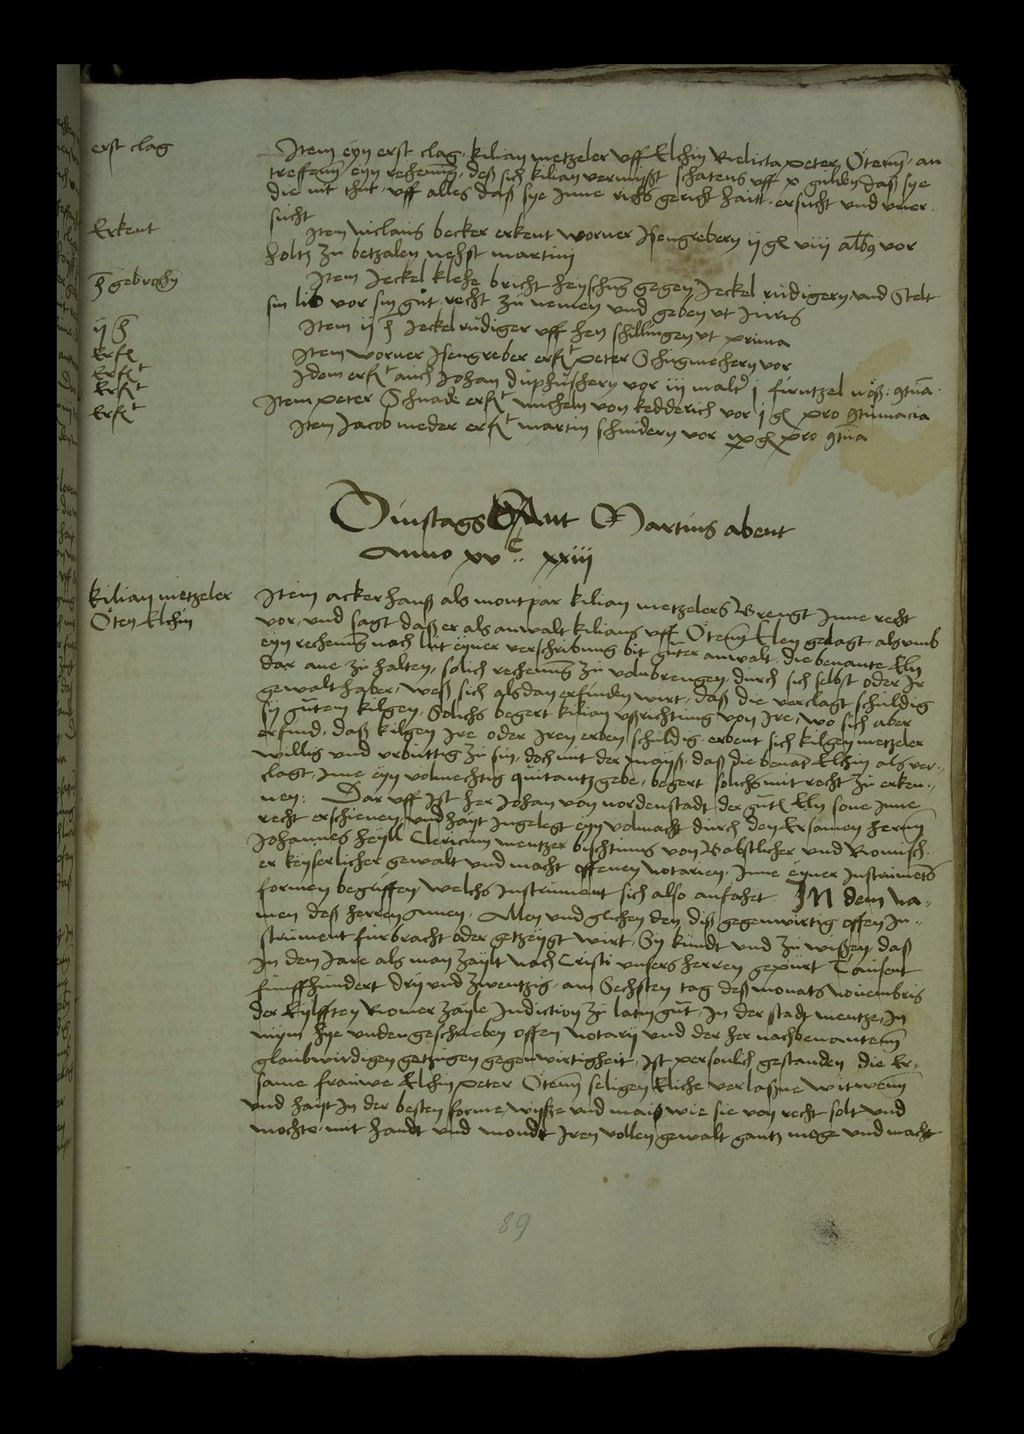 erst clag
Item eyn erst clag kilian metzeler uff Elchin Relicta peter Otenn an-
treffenn eyn rechenung, deß sich kilian vermyßt schatens uff x gulden daß sye
die nit thut, uff alles daß sye Inne richs gericht haitt ersucht und uner-
sucht
Erkent
Item niclaus becker erkent worner Isengrebern ij gl viij alb vor
holtz zu betzalen nehst martini
gebrochn
Item Jeckel klehe bricht heyschung gegen Jeckel rudigern und Stelt
sin lib vor sin gut recht zu nemen und geben ut Juris
ij h
Item ij h Jeckel rudiger uff hen schillingen ut prima
Erk
Item worner Isengreber erk peter Schumechern vor
Erk
Idem erk auch Johan duphuschern vor iij mald j furntzel
Erk
Item peter Schnade erk michem von kedderich vor j gl pro contumacia
Erk
Item Jacob meder erk martin schnidern vor ix gl pro
Dinstags Sant Martins abent
Anno xv c xxiij
kilian metzeler
Oten Elchin
Item acker hanß als montpar kilian metzelers Brengt Inne recht
vor, und sagt daß er als anwalt kilians uff Otenn Elen geclagt, als umb
eyn rechenung nach lut eyner verschribung bit guter anwalt, die benante Eln
dar ane zu halten, solich rechenung zu volnbrengen, durch sich selbst oder Ir
gewalt haber, weß sich alsdan erfinden wirt, daß die verclagt schuldig
sy gutem kilgen, Solichs begert kilian ußrichtung von Ire, wo sich aber
erfind, daß kilgen Ire oder Iren erben schuldig erbeut sich kilgen metzeler
willig und urbuttig zu sin, doch mit der mayß, daß die benant Elchin als ver-
clagt, Ime eyn volmechtig quitantz gebe, begert solichs mit recht zu erken-
nen. Dar uff Ist her Johan von nordenstadt der gut Eln sone Inne
recht erschienen, und hayt Ingelegt eyn volmacht durch den Ersamen herrn
Johannes heyll Clericum mentzer bischtums von Bobstlicher und Romisch-
er keyserlicher gewalt und macht offenen notarien, Inne eyner Instruments
formen begriffen, welchs Instrument sich also anfahet IN dem na-
men deß herren Amen, Allen und glichen den diß gegenwirtig offen In-
strument furbracht oder getzeygt wirt, Sy kundt und zu wißen, daß
In dem Jare als man zaylt nach Cristi unsers herren gepurt Tausent
funffhundert dry und zwentzig, am Sechsten tag deß monats novembris
der Eylfften Romer zayle Indiction zu latin gnt, In der stadt mentze, In
mym hye undengeschrieben offen notarij und der her nachbenantenn
glaubwirdigen getzugen gegenwirtigheit, Ist personlich gestanden die Er-
same frauwe Elchin peter Otenn seligen Eliche verlaßne witwenn
und hayt In der besten forme, wyße und maiß wie sie von recht solt und
mochte, mit handt und mondt Iren vollen gewalt gantz mege und macht
89